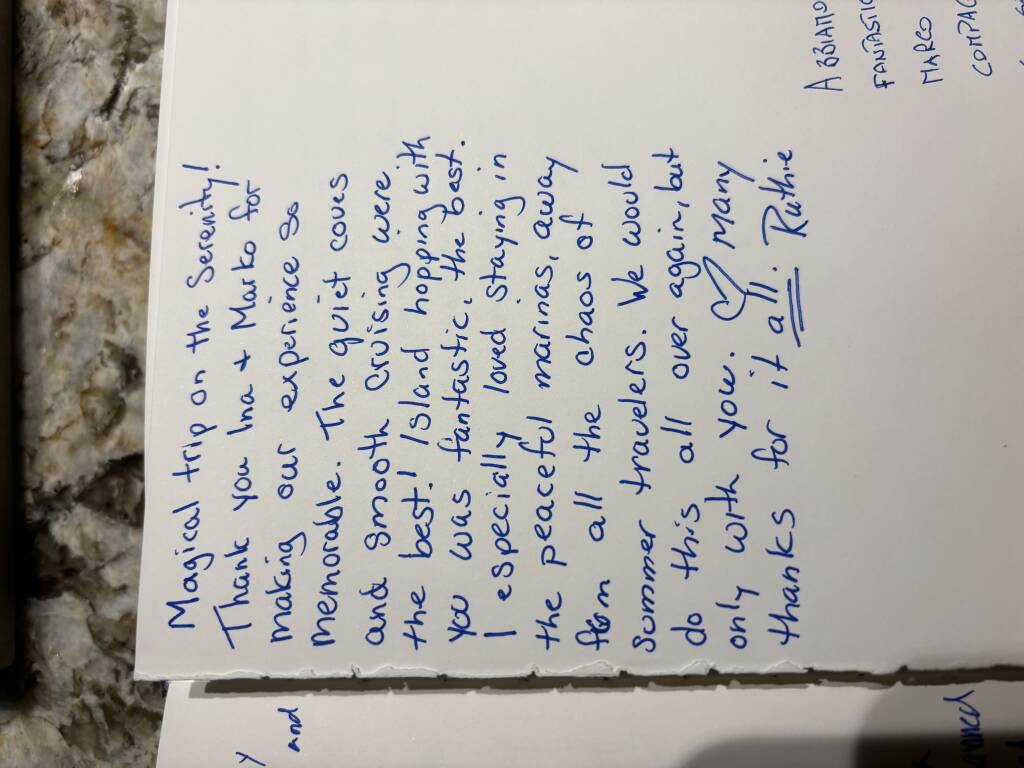 Magical trip on the Serenity!
Thank you Ina + Marko for
making our experience so
memorable. The quiet coves
and smooth cruising were
the best! Island hopping with
you was fantastic, the best.
I especially loved staying in
the peaceful marinas, away
from all the chaos of
summer travelers. We would
do this all over again, but
only with you. ♡ Many
thanks for it all. Ruthie
ABBIAMO
FANTASTIC
MARCO
COMPAG
y
and